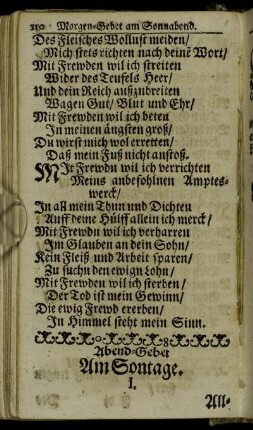 210 Morgen-Gebet am Sonnabend.
Des Fleisches Wollust meiden/
Mich stets richten nach deinē Wort/
Mit Frewden wil ich streiten
Wider des Teufels Heer/
Und dein Reich außzubreiten
Wagen Gut/ Blut und Ehr/
Mit Frewden wil ich beten
In meinen ängsten groß/
Du wirst mich wol erretten/
Daß mein Fuß nicht anstoß.
Mit Frewdn wil ich verrichten
Meins anbefohlnen Amptes-
werck/
In all mein Thun und Dichten
Auff deine Hülff allein ich merck/
Mit Frewdn wil ich verharren
Im Glauben an dein Sohn/
Kein Fleiß und Arbeit sparen/
Zu suchn den ewign Lohn/
Mit Frewden wil ich sterben/
Der Tod ist mein Gewinn/
Die ewig Frewd ererben/
In Himmel steht mein Sinn.
Abend-Gebet
Am Sontage.
I.
All-